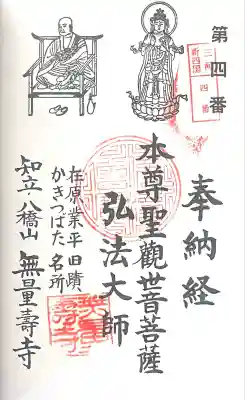 第四番
三河
新四国
四番
奉納経
本尊聖觀世音菩薩
弘法大師
在原業平旧蹟
かきつばた名所
知立八橋山無量壽寺